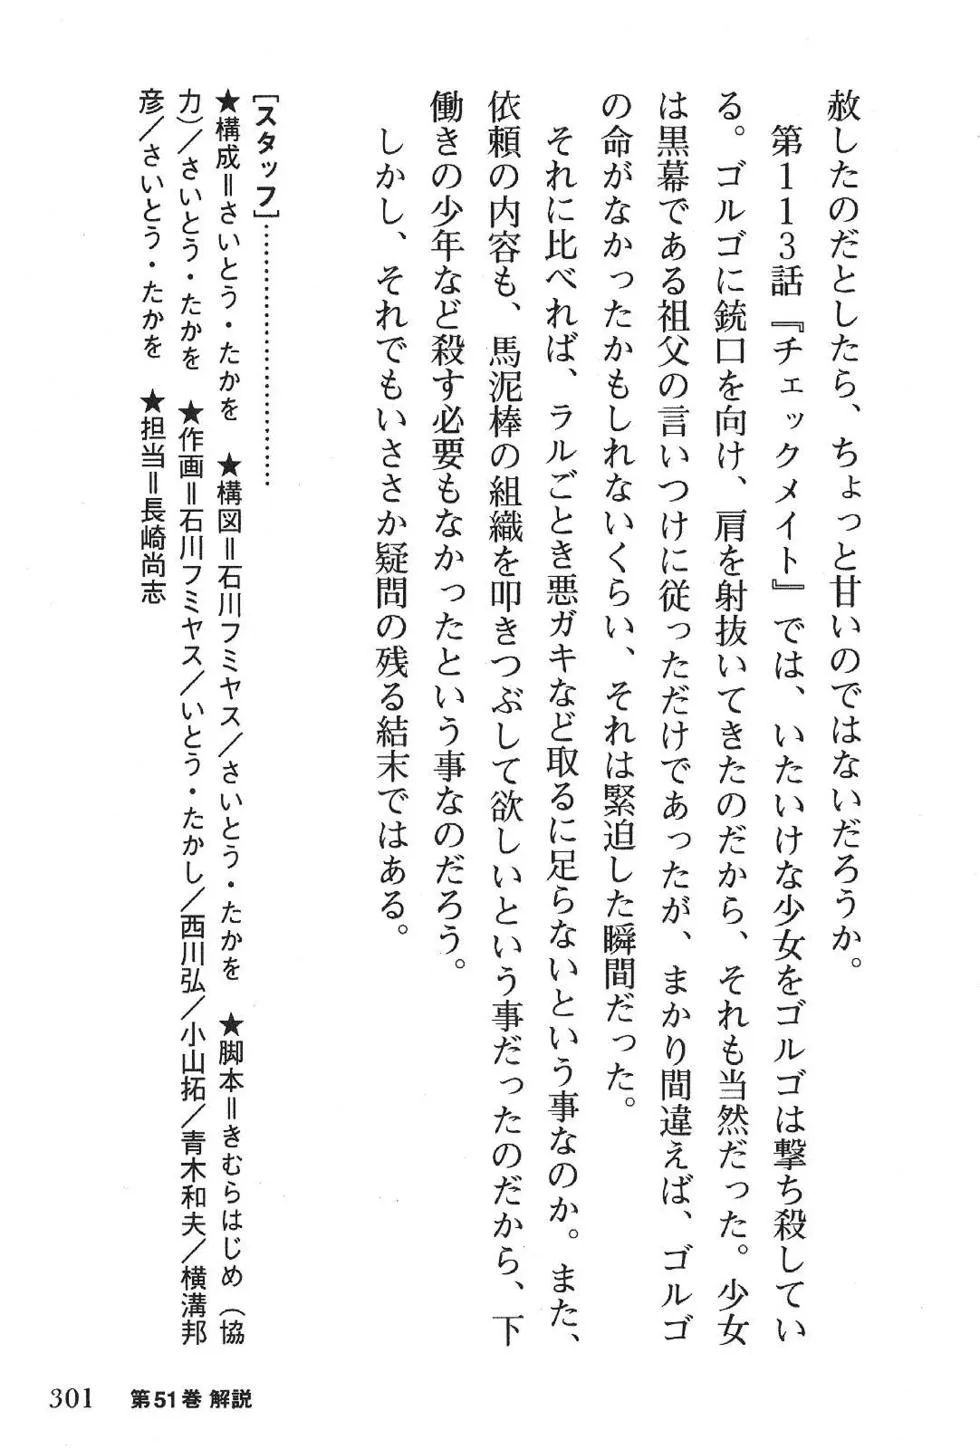 赦したのだとしたら、ちょっと甘いのではないだろうか。
第113話『チェックメイト』では、いたいけな少女をゴルゴは撃ち殺してい
る。ゴルゴに銃口を向け、肩を射抜いてきたのだから、それも当然だった。少女
は黒幕である祖父の言いつけに従っただけであったが、まかり間違えば、ゴルゴ
の命がなかったかもしれないくらい、それは緊迫した瞬間だった。
それに比べれば、ラルごとき悪ガキなど取るに足らないという事なのか。また、
依頼の内容も、馬泥棒の組織を叩きつぶして欲しいという事だったのだから、下
働きの少年など殺す必要もなかったという事なのだろう。
しかし、それでもいささか疑問の残る結末ではある。
[スタッフ]……………………
★構成＝さいとう・たかを ★構図＝石川フミヤス／さいとう・たかを ★脚本＝きむらはじめ（協
力）／さいとう・たかを ★作画＝石川フミヤス／いとう・たかし／西川弘／小山拓／青木和夫／横溝邦
彦／さいとう・たかを ★担当＝長崎尚志
301 第51巻 解説